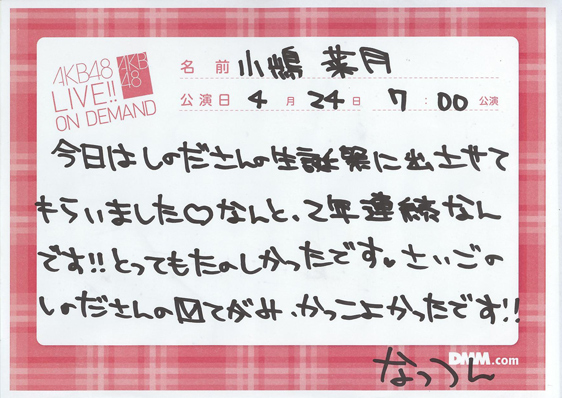 AKB48
LIVE!!
ON DEMAND
AKB
48
名前 小嶋 菜月
公演日 4月24日 7:00公演
今日はしのださんの生誕祭に出させて
もらいました♡なんと、2年連続なん
です!!とってもたのしかったです♥さいごの
しのださんの てがみ、かっこよかったです!!
なっつん
DMM.com